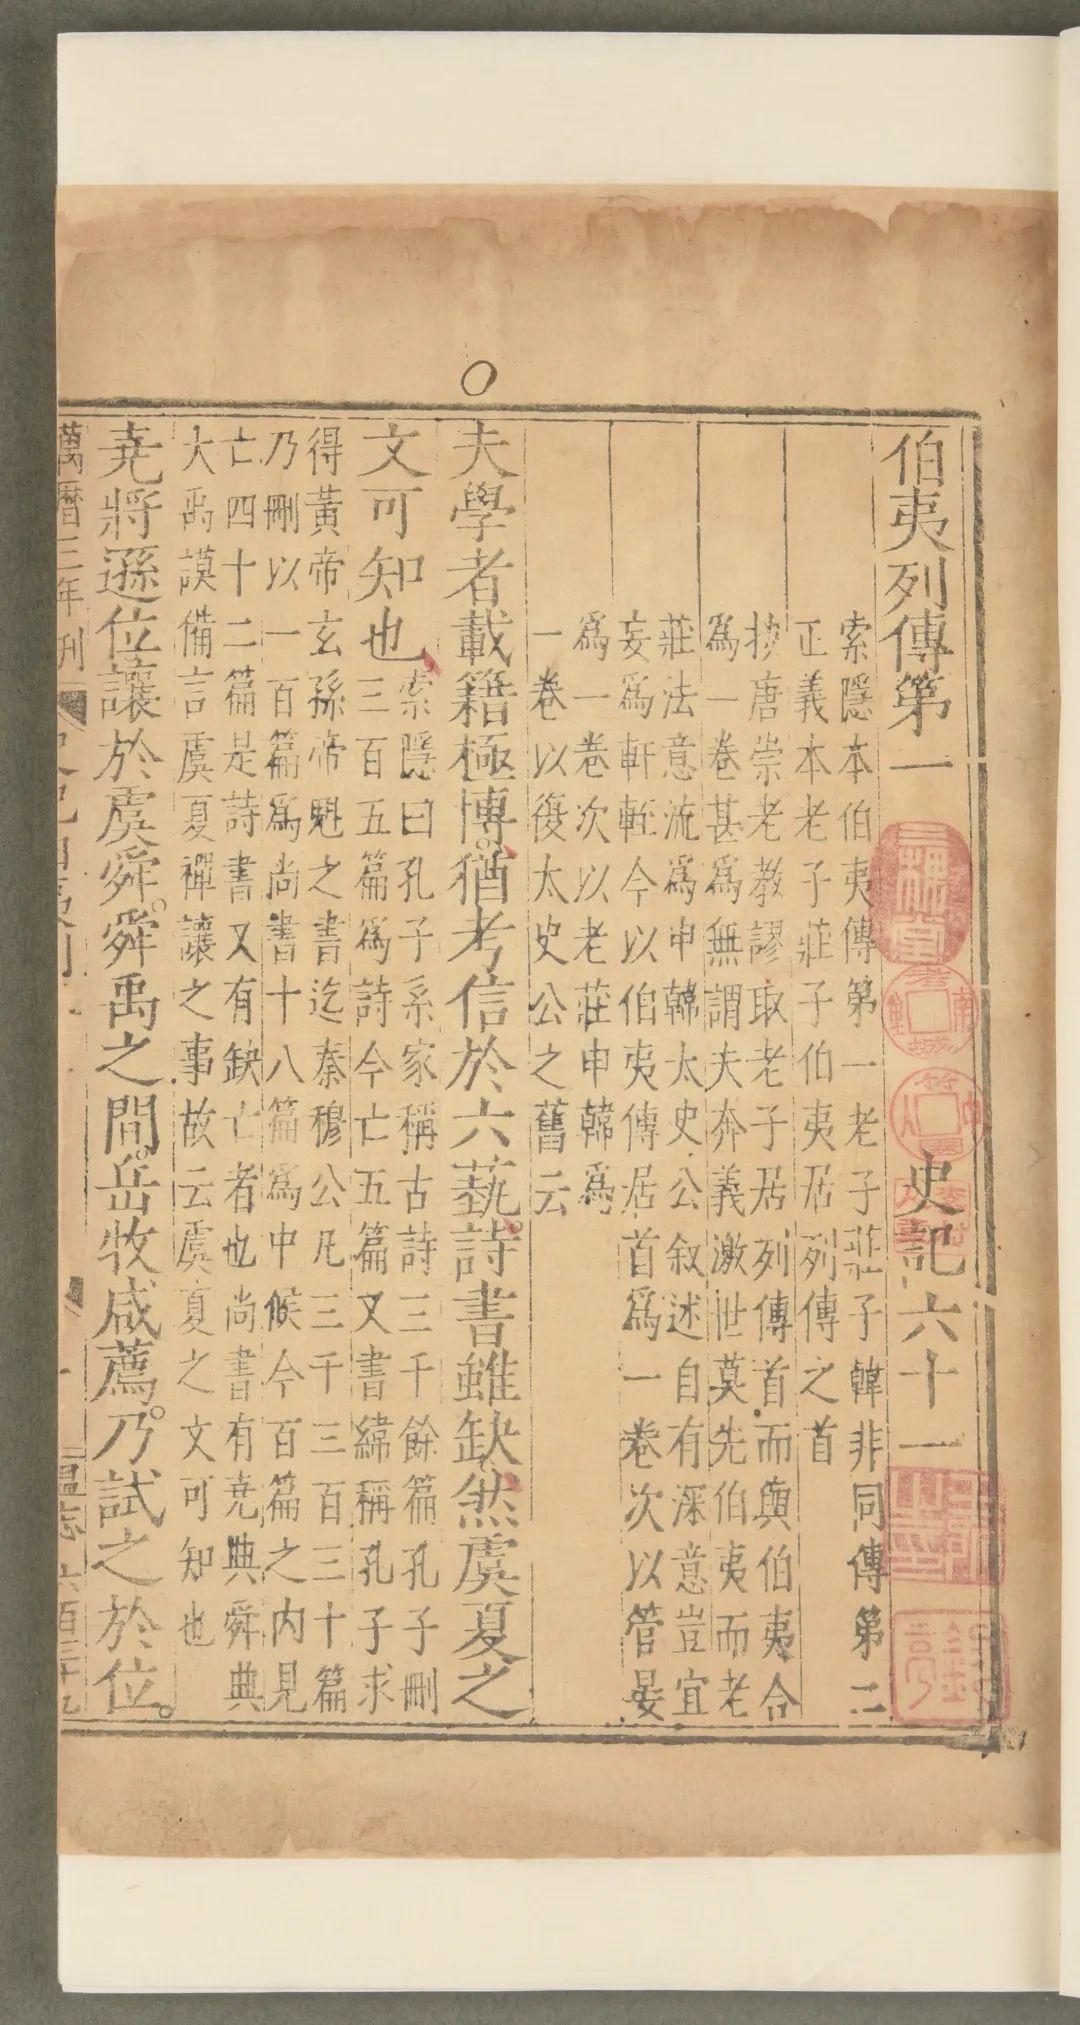 伯夷列傳第一　史記六十一
索隱本伯夷傳第一老子莊子韓非同傳第二
正義本老子莊子伯夷居列傳之首
按唐崇老教謬取老子居列傳首而與伯夷合
爲一卷甚爲無謂夫奔義激世莫先伯夷而老
莊法意流爲申韓太史公叙述自有深意豈宜
妄爲軒輊今以伯夷傳居首爲一卷次以管晏
爲一卷次以老莊申韓爲
一卷以復太史公之舊云
夫學者載籍極博。猶考信於六藝。詩書雖缺然虞夏之
文可知也
索隱曰孔子系家稱古詩三千餘篇孔子刪
三百五篇爲詩今亡五篇又書緯稱孔子求
得黃帝玄孫帝魁之書迄秦穆公凡三千三百三十篇
乃刪以一百篇爲尚書十八篇爲中候今百篇之內見
亡四十二篇是詩書又有缺亡者也尚書有堯典舜典
大禹謨備言虞夏禪讓之事故云虞夏之文可知也
堯將遜位讓於虞舜。舜禹之間。岳牧咸薦。乃試之於位。
萬曆三年刊